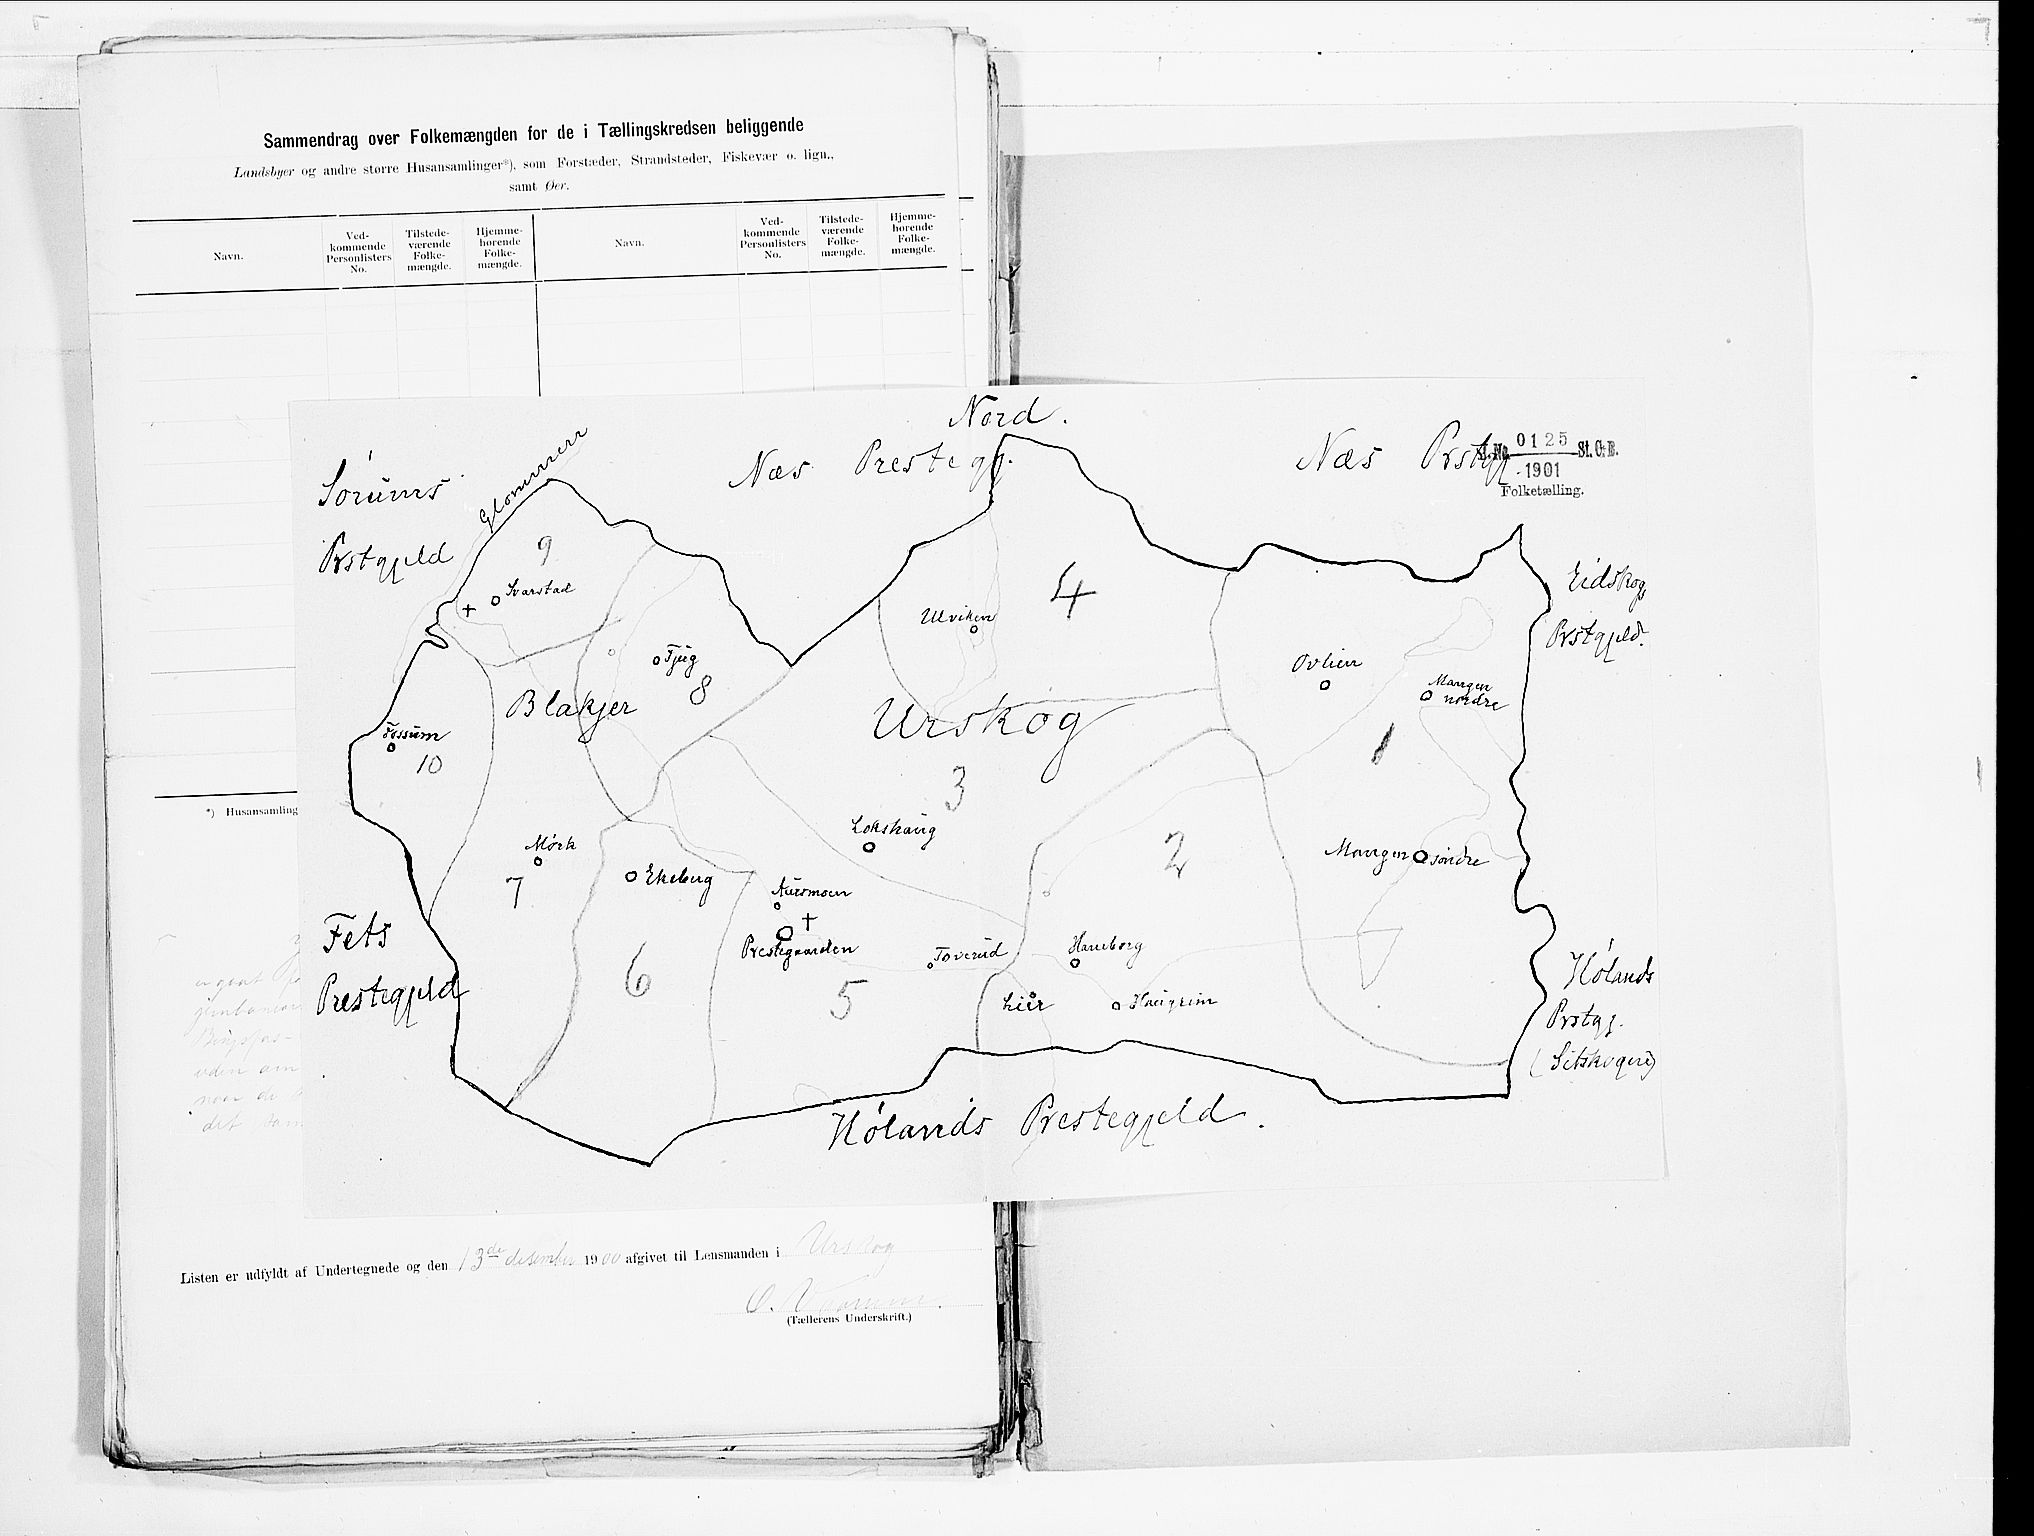 Sammendrag over Folkemængden for de i Tællingskredsen beliggende
Landsbyer og andre større Husansamlinger*), som Forstæder, Strandsteder, Fiskevær o. lign.,
samt Øer.
Navn.
Ved-
kommende
Personlisters
No.
Tilstede-
værende
Folke-
mængde.
Hjemme-
hørende
Folke-
mængde.
Navn.
Ved-
kommende
Personlisters
No.
Tilstede-
værende
Folke-
mængde.
Hjemme-
hørende
Folke-
mængde.
*) Husansamling
Nord.
Næs Prestegj.
Næs Prstgj
J. No. 0125 St. C. B.
1901
Folketælling.
Sørums
Prstgjeld
Glommen
Eidskogs
Prstgjeld.
9
Svarstad
4
Ulviken
Ovlien
Mangen
nordre
Tjug
8
Blakjer
Urskog
1
Fossum
10
3
Lokshaug
2
Mangen søndre
Mørk
7
Ekeberg
Aursmoen
Prestegaarden
Toverud
Haneborg
Lier
Haugrim
6
5
Fets
Prestegjeld
Hølands
Prstgj.
(Setskogen)
Hølands Prestegjeld.
uden om
Listen er udfyldt af Undertegnede og den 13de desember 1900 afgivet til Lensmanden i Urskog
(Tællerens Underskrift.)